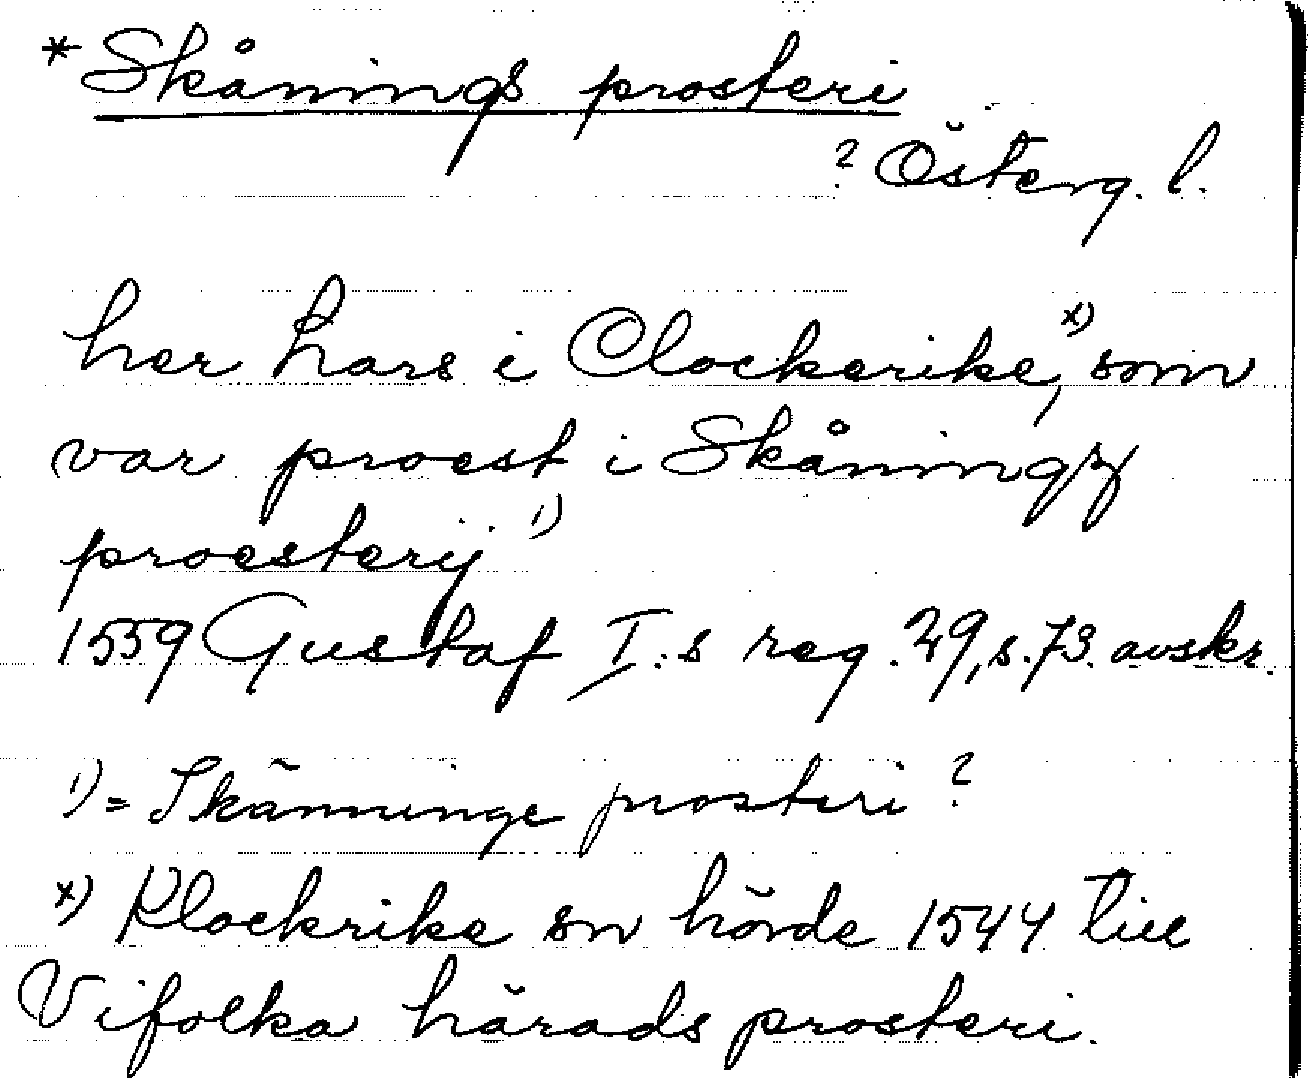 * Skånings prosteri
? Österg. l.
her Lars i Clockerike,ˣ⁾ som
var proest i Skåningz
proesterij ¹⁾
1559 Gustaf I:s reg. 29, s. 73. avskr.
1) = Skänninge prosteri ?
x) Klockrike sn hörde 1544 till
Vifolka härads prosteri.